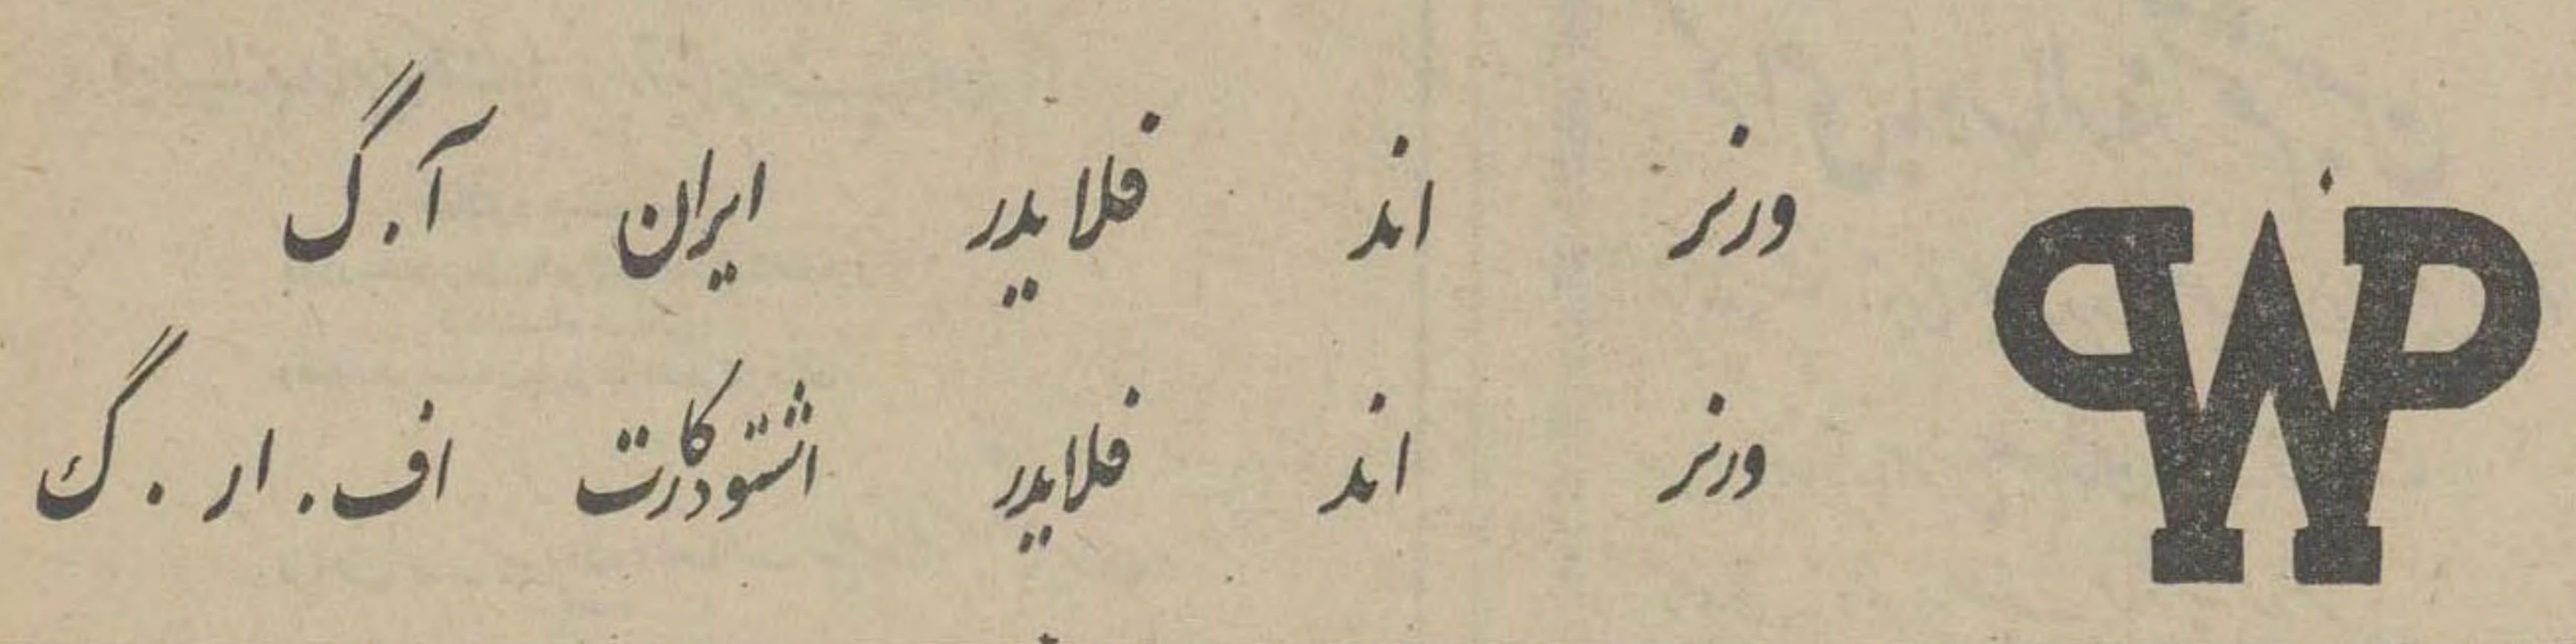 ورنر اند فلایدر ایران آ.گ
ورنر اند فلایدر اشتودکارت اف. ار. گ
WP